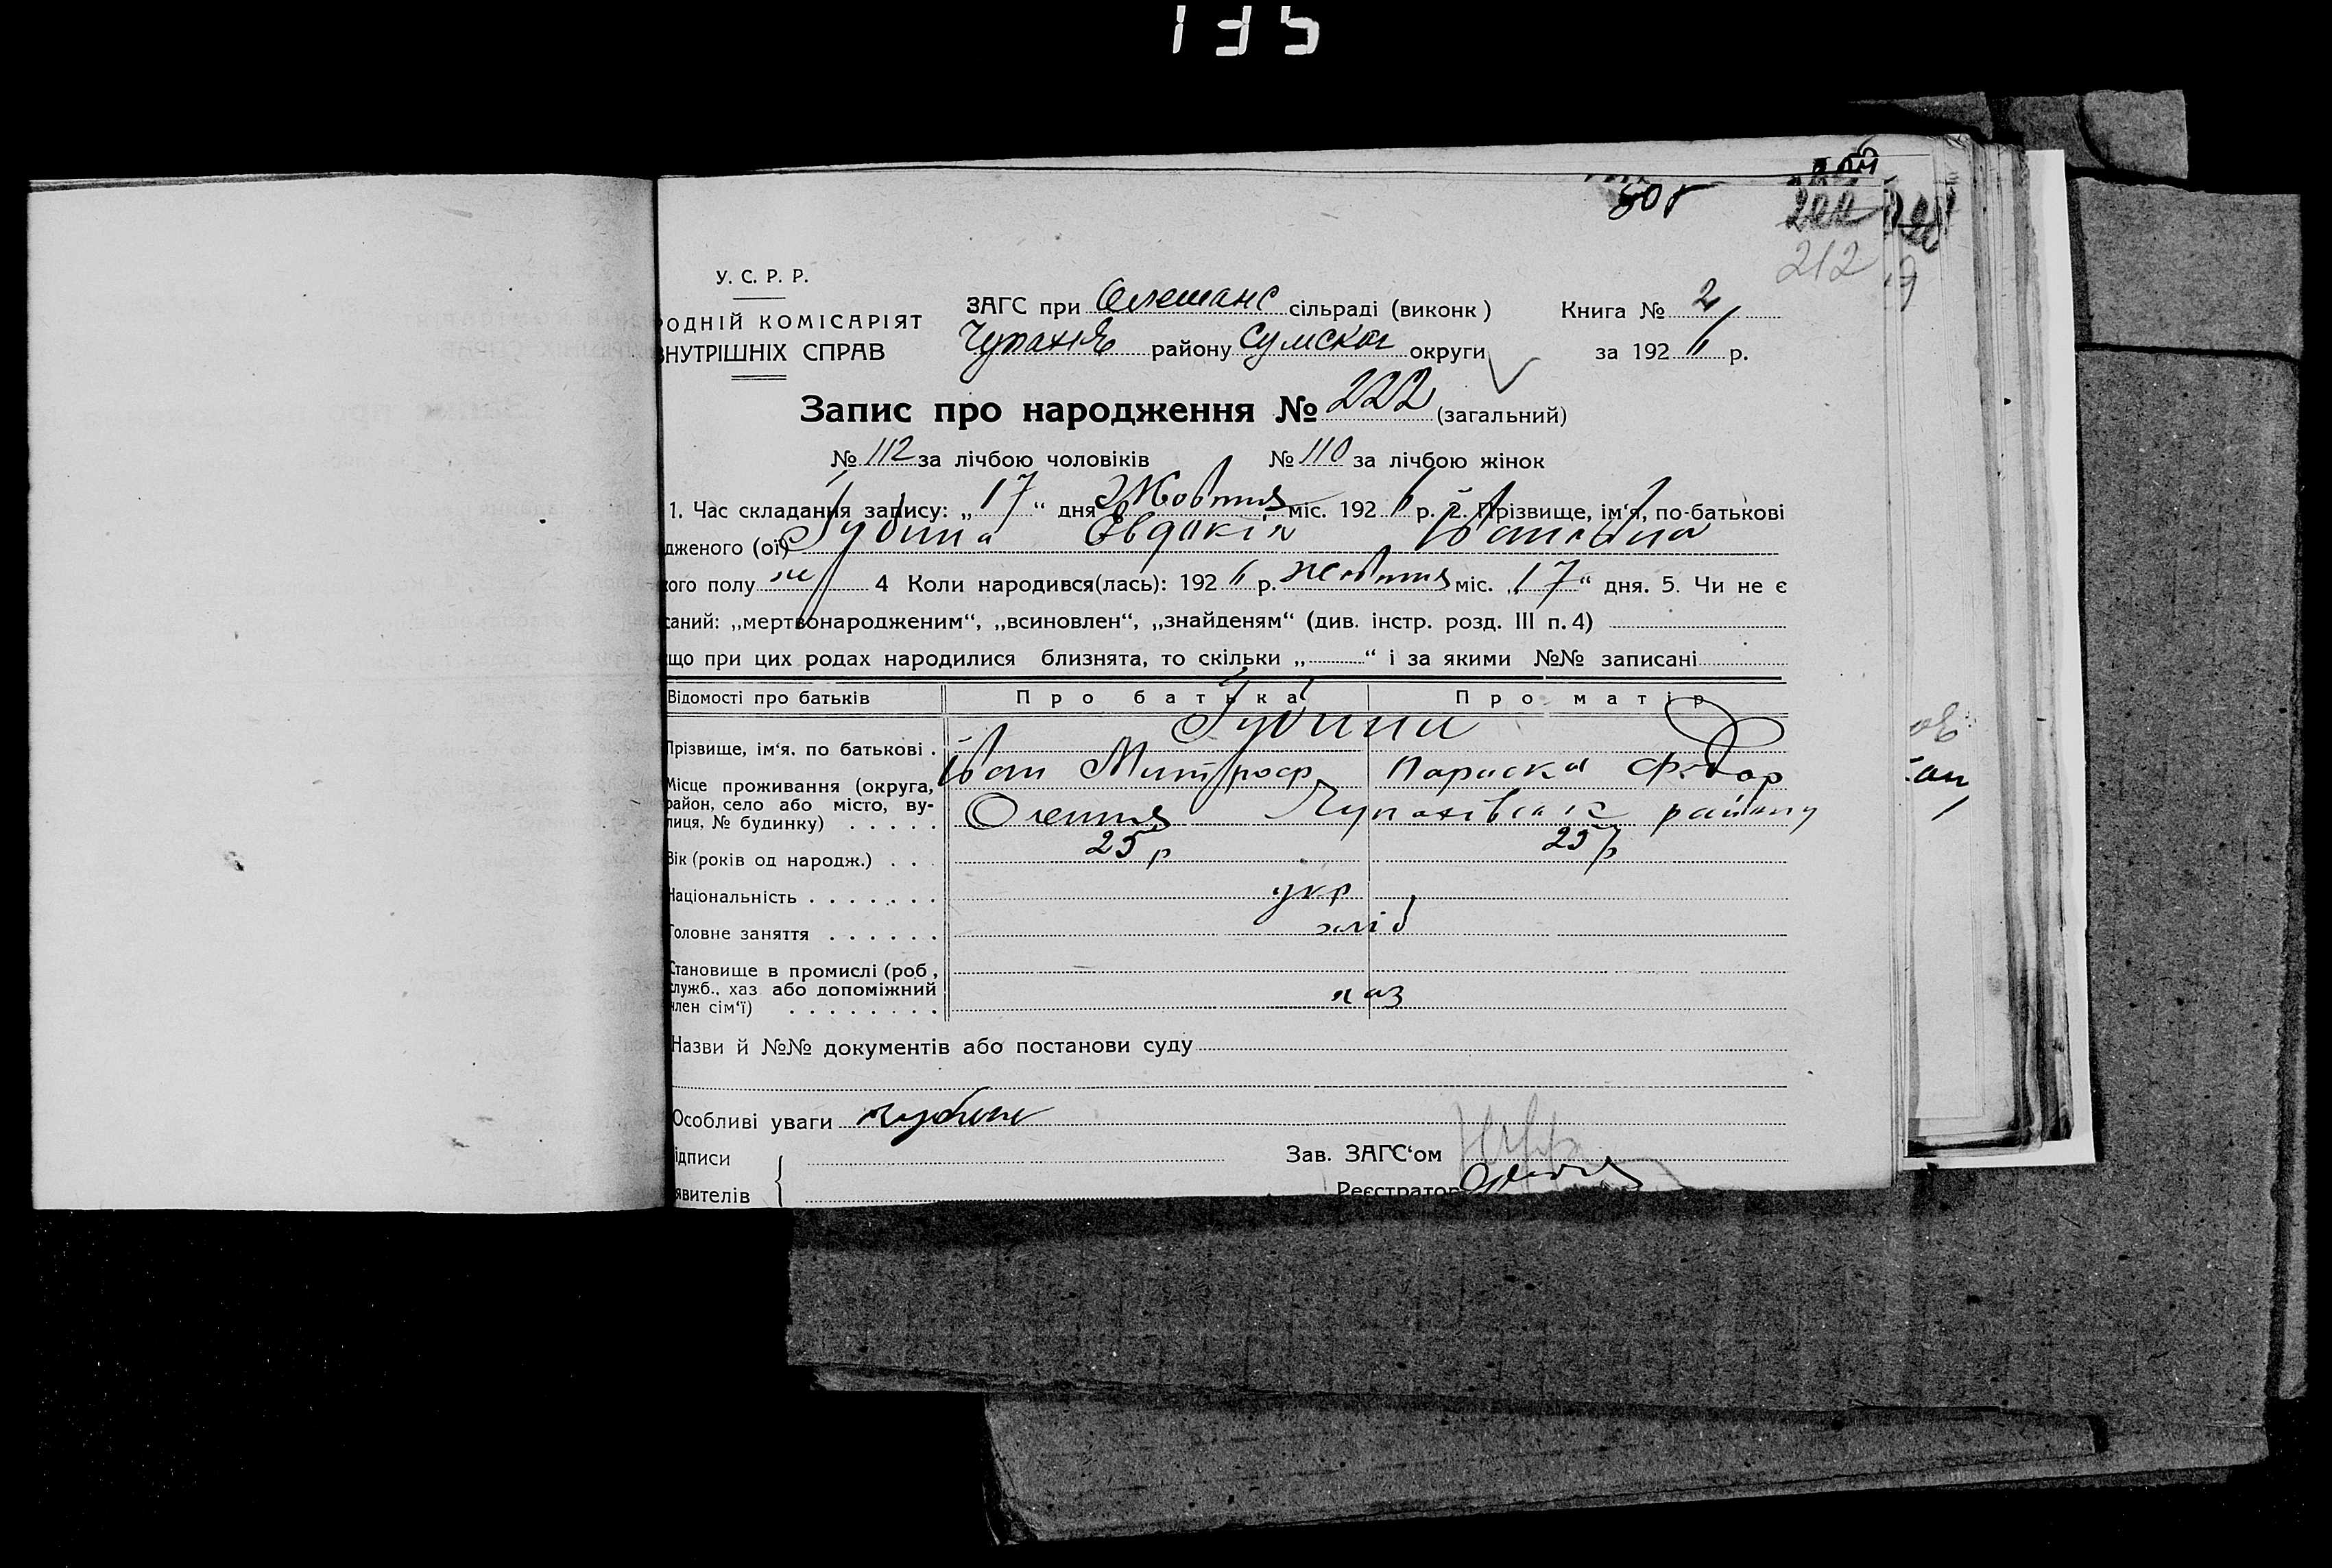 135
80г
212
У. С. Р. Р.
РОДНІЙ КОМІСАРІЯТ
ВНУТРІШНІХ СПРАВ
ЗАГС при Олешанс сільраді (виконк)
районy Сумськ округи
Книга № 2
за 192 р.
Запис про народження № 222 (загальний)
№ 112 за лічбою чоловіків № 110 за лічбою жінок
1. Час складання запису: „ 17 “ дня Жовтня міс. 192 р. 2. Прізвище, ім‘я, по-батькові
дженого (ої) Губина Евдокія Івановна
кого полу ж 4 Коли народився(лась): 192 р. жовтня міс. „ 17 “ дня. 5. Чи не є
саний: „мертвонародженим“, „всиновлен“, „знайденям“ (див. інстр. розд. III п. 4)
що при цих родах народилися близнята, то скільки „ “ і за якими №№ записані
Відомості про батьків Про батька Про матір
Губини
Прізвище, ім‘я. по батькові . Іван Митроф Параска Федор
Місце проживання (округа,
район, село або місто, ву-
лиця, № будинку) . . . . . Олешня Чупахівськ району
Вік (років од народж.) . . . 25 р 25 р
Національність . . . . . . . укр
Головне заняття . . . . . . хліб
Становище в промислі (роб,
служб., хаз або допоміжний
член сім‘ї) . . . . . . . . хаз
Назви й №№ документів або постанови суду
Особливі уваги
ідписи
явителів
Зав. ЗАГС‘ом
Реєстратор